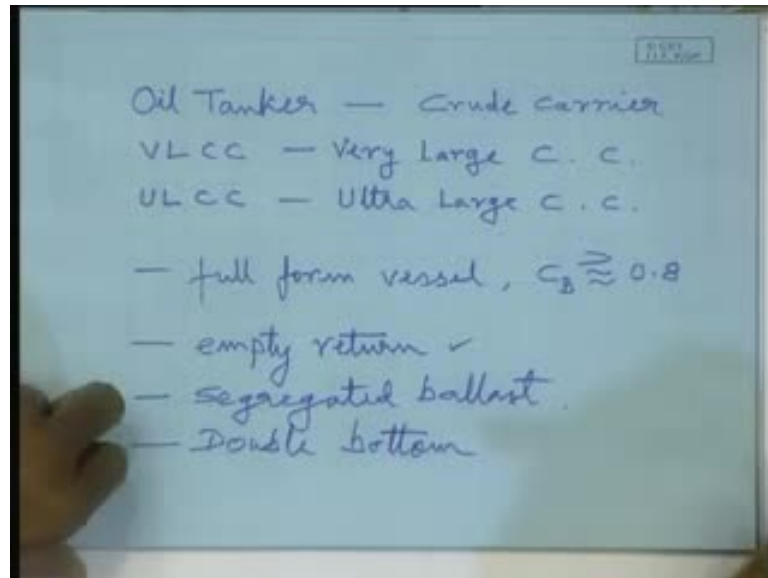 Oil Tanker — Crude Carrier
VLCC — Very Large C. C.
ULCC — Ultra Large C. C.
— full form vessel, C_B ⪆ 0.8
— empty return ✓
— Segregated ballast.
— Double bottom